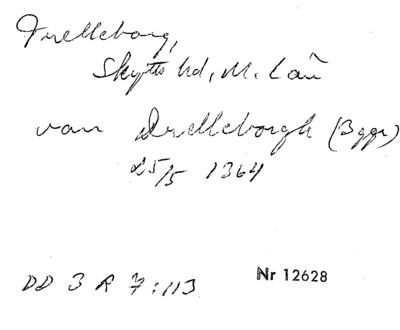 Trelleborg,
Skytts hd, M. Län
van Drelleborgh (Bggr)
25/5 1364
DD 3 R 7:113
Nr 12628